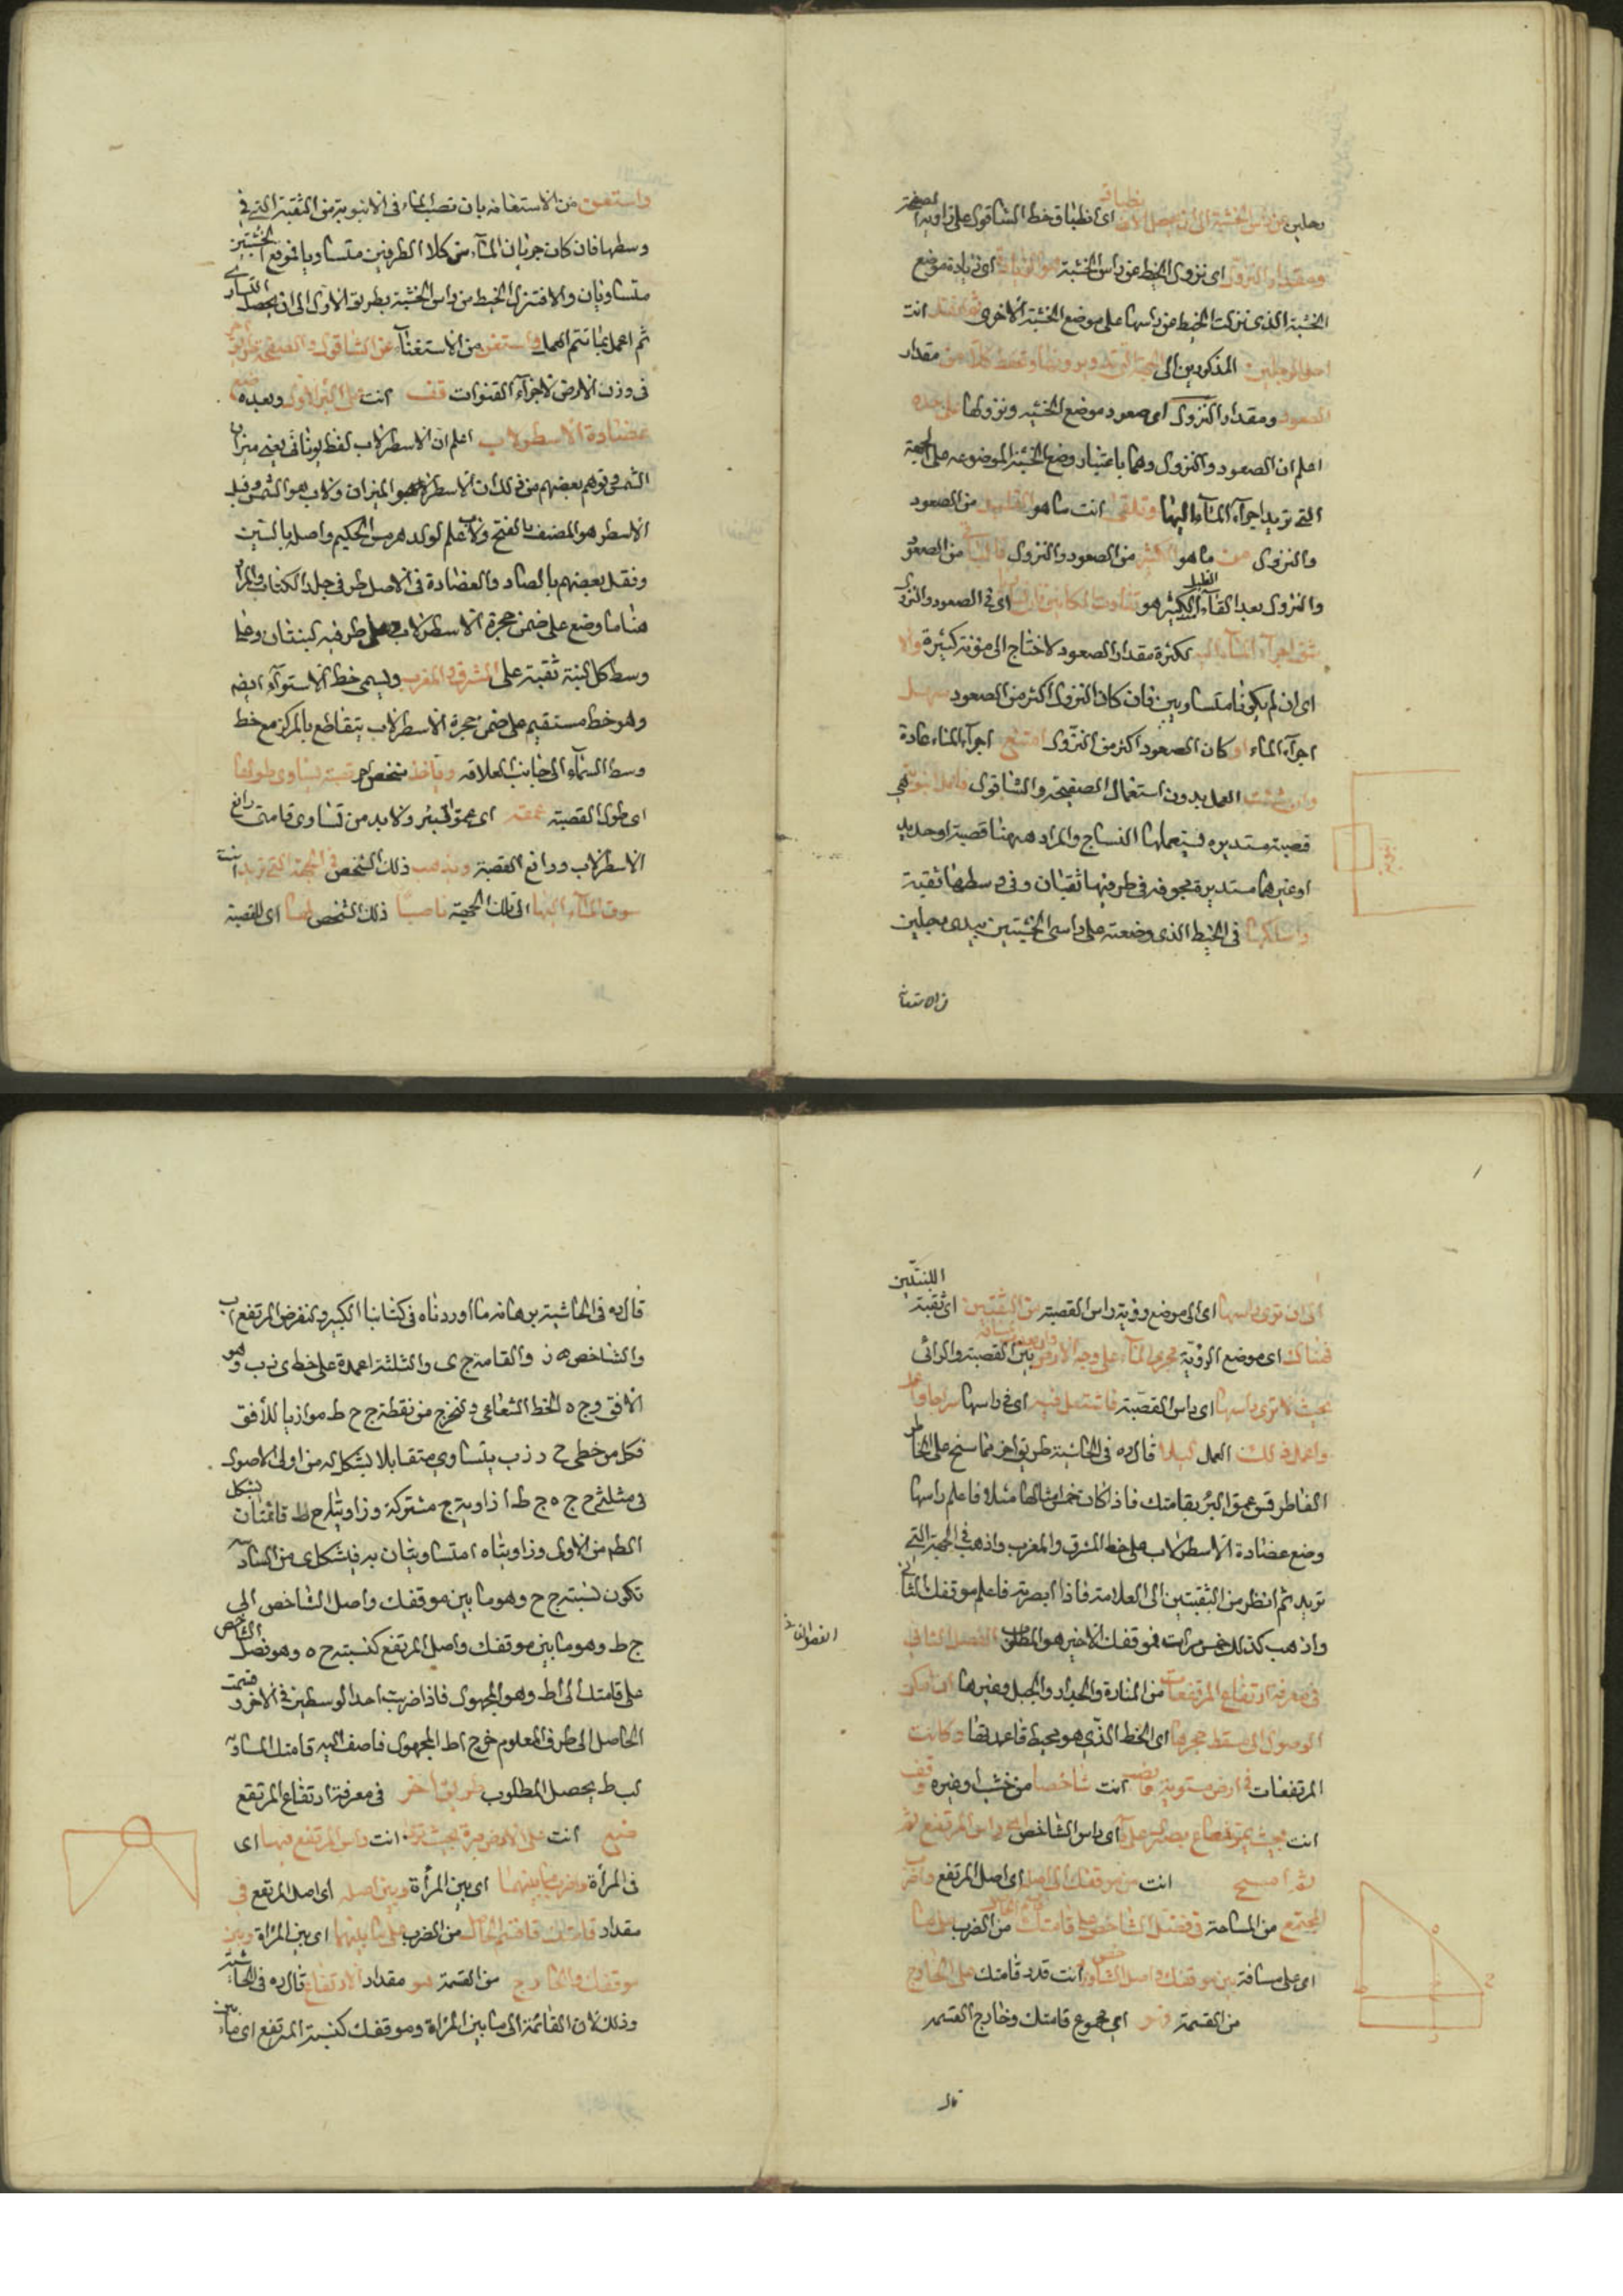 رجلين من راس الخشبة الى ان يحصل الانطباق اى انطباق خط الشاقول على زاوية الصفيحة
ومقدار النزول اى نزول الخيط عن راس الخشبة هو الزيادة اى زيادة موضع
الخشبة الذى نزلت الخيط عن راسها على موضع الخشبة الاخرى ثم انقل انت
احد الرجلين المذكورين الى الجهة التى تريد وزنها وتحفظ كلا من مقدار
الصعود ومقدار النزول اى صعود موضع الخشبة ونزولها على حدة
اعلم ان الصعود والنزول وهما باعتبار وضع الخشبة الموضوعة على الجهة
التى تريد اجراء الماء اليها وتلقى انت ما هو القليل من الصعود
والنزول من ما هو الكثير من الصعود والنزول فالباقى من الصعود
والنزول بعد القاء القليل الكثير هو تفاوت المكانين فان تساويا اى فى الصعود والنزول
شق اجراء الماء اليه لكثرة مقدار الصعود لاحتاج الى مؤنة كثيرة والا
اى ان لم يكونا متساويين فان كان النزول اكثر من الصعود سهل
اجراء الماء او كان الصعود اكثر من النزول امتنع اجراء الماء عادة
وان شئت العمل بدون استعمال الصفيحة والشاقول فاعمل انبوبة هى
قصبة مستديرة يستعملها النساج والمراد ههنا قصبة او حديد
او غيرهما مستديرة مجوفة فى طرفيها ثقبتان وفى وسطها ثقبة
واسلكها فى الخيط الذى وضعته على راسى الخشبتين بيدى رجلين
من الاستعا
واستعن من الاستعانة بان تصب الماء فى الانبوبة من الثقبة التى فى
وسطها فان كان جريان الماء من كلا الطرفين متساويا فموقع الخشبتين
متساويان والا فتنزل الخيط من راس الخشبة بطريق الاول الى ان يحصل التساوى
ثم اعمل بما تتم العمل واستغن من الاستغناء عن الشاقول والصفيحة طريق آخر
فى وزن الارض لاجراء القنوات قف انت على البئر الاول وبعده ضع
عضادة الاسطرلاب اعلم ان الاسطرلاب لفظ يونانى يعنى ميزان
الشمس وتوهم بعضهم من ذلك ان الاسطر هو الميزان ولاب هو الشمس وقيل
الاسطر هو المصنف بالفتح ولاب علم لولد هرمس الحكيم واصله بالسين
ونقل بعضهم بالصاد والعضادة فى الاصل طرفى جلد الكتاب والمراد
هنا ما وضع على ضمن حجرة الاسطرلاب وعلى طرفيه لبنتان وعلى
وسط كل لبنة ثقبة على المشرق والمغرب ويسمى خط الاستواء ايضه
وهو خط مستقيم على ضمن حجرة الاسطرلاب يتقاطع بالمركز مع خط
وسط السماء الى جانب العلاقة وياخذ شخص آخر قصبة يساوى طولها
اى طول القصبة عمقه اى عمق البئر ولا بد من تساوى قامتى رافع
الاسطرلاب ورافع القصبة ويذهب ذلك الشخص فى الجهة التى تريد انت
سوق الماء اليها الى تلك الجهة ناصبا ذلك الشخص لها اى للقصبة
الى ان ترى راسها اى الى موضع رؤية راس القصبة من الثقبتين اى ثقبة اللبنتين
فهناك اى موضع الرؤية مجرى الماء على وجه الارض وان بعدت مسافة بين القصبة والرائى
بحيث لا ترى راسها اى راس القصبة فاشتعل فيه اى فى راسها سراجا
واعمل ذلك العمل ليلا قال ره فى الحاشية طريق آخر مما سنح على الخاطر
الفاطر قس عمق البئر بقامتك فاذا كان خمس امثالها مثلا فاعلم راسها
وضع عضادة الاسطرلاب على خط المشرق والمغرب واذهب فى الجهة التى
تريد ثم انظر من الثقبتين الى العلامة فاذا ابصرته فاعلم موقفك الثانى
واذهب كذلك خمس مرات فموقفك الاخير هو المطلوب الفصل الثانى
فى معرفة ارتفاع المرتفعات من المنارة والجدار والجبل وغيرها ان امكن
الوصول الى مسقط حجرها اى الخط الذى هو محيط قاعدتها وكانت
المرتفعات فى ارض مستوية فانصب انت شاخصا من خشب او غيره وقف
انت بحيث يمر شعاع بصرك على اى راس الشاخص الى راس المرتفع ثم
ثم امسح انت من موقفك الى اصله اى اصل المرتفع واضرب
المجتمع من المساحة فى فضل الشاخص على قامتك من الضرب على ما
اى على مسافة بين موقفك واصل الشاخص انت قدر قامتك على الخارج
من القسمة فهو اى مجموع قامتك وخارج القسمة
قال
قال ره فى الحاشية برهانه ما اوردناه فى كتابنا الكبير ولنفرض المرتفع اب
والشاخص ه ز والقامة ج ى والثلثة اعمدة على خط ى ز ب وهو
الافق و ج ه الخط الشعاعى ونخرج من نقطة ج ج ط موازيا للأفق
فكل من خطى ح ز ب يتساوى متقابلا بشكل له من اولى الاصول
فى مثلثى ح ج ه ج ط ا زاوية ج مشتركة وزاويتا ح ط قائمتان بشكل
الط من الاولى وزاويتا ه ا متساويتان به فبشكل من السادسة
تكون نسبة ج ح وهو ما بين موقفك واصل الشاخص الى
ج ط وهو ما بين موقفك واصل المرتفع كنسبة ح ه وهو فضل الشاخص
على قامتك الى ا ط وهو المجهول فاذا ضربت احد الوسطين فى الآخر وقسمت
الحاصل الى طرف المعلوم خرج اط المجهول فاضف اليه قامتك المساوية
لب ط يحصل المطلوب طريق آخر فى معرفة ارتفاع المرتفع
ضع انت على الارض مرآة بحيث ترى انت راس المرتفع فيها اى
فى المرآة واضرب ما بينهما اى بين المرآة وبين اصله اى اصل المرتفع فى
مقدار قامتك فاقسم الحاصل من الضرب على ما بينهما اى بين المرآة وبين
موقفك والخارج من القسمة هو مقدار الارتفاع قال ره فى الحاشية
وذلك لان القائمة الى ما بين المرآة وموقفك كنسبة المرتفع اى ما بين